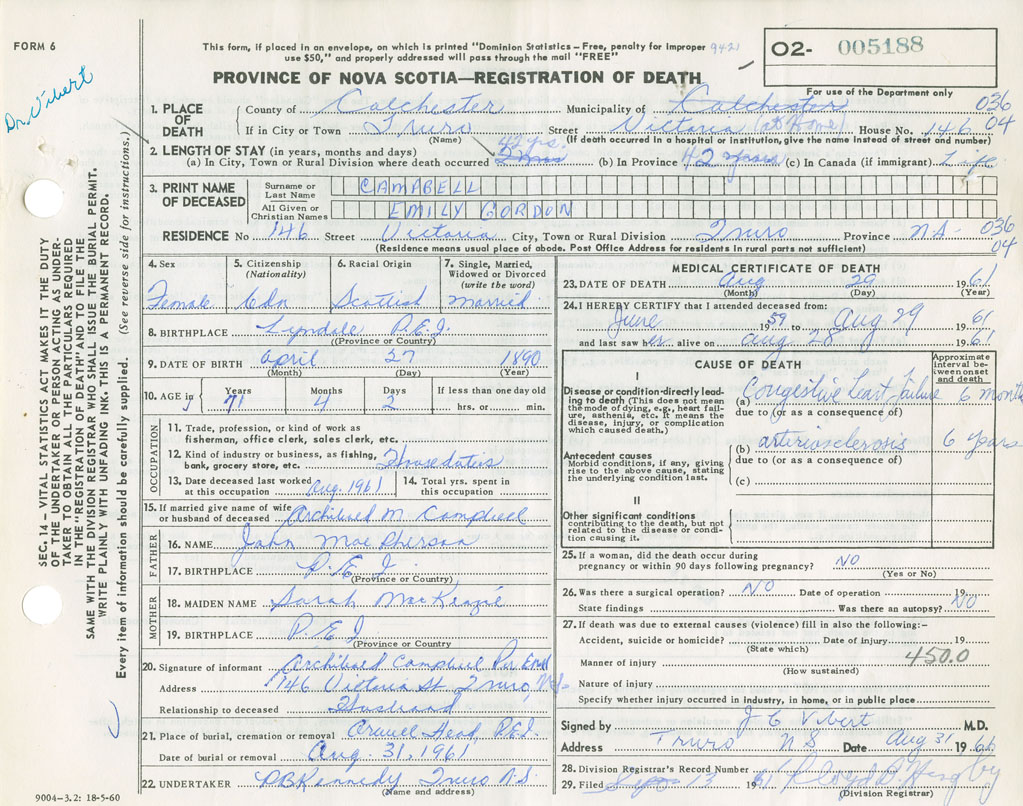 FORM 6
This form, if placed in an envelope, on which is printed "Dominion Statistics—Free, penalty for improper
use $50," and properly addressed will pass through the mail "FREE"
9421
O2- 005188
For use of the Department only
Dr. Vibert
PROVINCE OF NOVA SCOTIA—REGISTRATION OF DEATH
1. PLACE OF DEATH
County of Colchester Municipality of Colchester 036
If in City or Town Truro Street Victoria (at Home) House No. 146 04
(Name) (If death occurred in a hospital or institution, give the name instead of street and number)
2. LENGTH OF STAY (in years, months and days) 42 yrs.
(a) In City, Town or Rural Division where death occurred (b) In Province 42 years (c) In Canada (if immigrant) Life
3. PRINT NAME OF DECEASED
Surname or Last Name CAMPBELL
All Given or Christian Names EMILY GORDON
RESIDENCE No 146 Street Victoria City, Town or Rural Division Truro Province N.S. 036
04
(Residence means usual place of abode. Post Office Address for residents in rural parts not sufficient)
4. Sex Female
5. Citizenship (Nationality) Cdn
6. Racial Origin Scottish
7. Single, Married, Widowed or Divorced (write the word) Married
8. BIRTHPLACE Lyndale P.E.I.
(Province or Country)
9. DATE OF BIRTH April 27 1890
(Month) (Day) (Year)
10. AGE in Years 71 Months 4 Days 2 If less than one day old
hrs. or min.
OCCUPATION
11. Trade, profession, or kind of work as
fisherman, office clerk, sales clerk, etc.
12. Kind of industry or business, as fishing,
bank, grocery store, etc. House duties
13. Date deceased last worked at this occupation Aug. 1961
14. Total yrs. spent in this occupation
15. If married give name of wife
or husband of deceased Archibald M. Campbell
FATHER
16. NAME John MacPherson
17. BIRTHPLACE P.E.I
(Province or Country)
MOTHER
18. MAIDEN NAME Sarah MacKenzie
19. BIRTHPLACE P.E.I
(Province or Country)
20. Signature of informant Archibald Campbell Per
Address 146 Victoria St Truro, N.S.
Relationship to deceased Husband
21. Place of burial, cremation or removal Head P.E.I.
Date of burial or removal Aug. 31, 1961
22. UNDERTAKER P B Kennedy Truro N.S.
(Name and address)
9004-3.2: 18-5-60
MEDICAL CERTIFICATE OF DEATH
23. DATE OF DEATH Aug 29 1961
(Month) (Day) (Year)
24. I HEREBY CERTIFY that I attended deceased from:
June 1959 to Aug 29 1961
and last saw her alive on Aug 28 1961
CAUSE OF DEATH
Approximate interval between onset and death
I
Disease or condition directly leading to death (This does not mean
the mode of dying, e.g., heart failure, asthenia, etc. It means the
disease, injury, or complication
which caused death.)
(a) Congestive heart failure 6 months
due to (or as a consequence of)
(b) arteriosclerosis 6 years
Antecedent causes
Morbid conditions, if any, giving
rise to the above cause, stating
the underlying condition last.
due to (or as a consequence of)
(c)
II
Other significant conditions
contributing to the death, but not
related to the disease or condition
causing it.
25. If a woman, did the death occur during
pregnancy or within 90 days following pregnancy? NO
(Yes or No)
26. Was there a surgical operation? NO Date of operation 19
State findings Was there an autopsy? NO
27. If death was due to external causes (violence) fill in also the following:—
Accident, suicide or homicide? Date of injury 19
(State which)
450.0
Manner of injury
(How sustained)
Nature of injury
Specify whether injury occurred in industry, in home, or in public place
Signed by J E Vibert M.D.
Address Truro N S Date Aug 31 1961
28. Division Registrar's Record Number
29. Filed Sept 13 61
(Division Registrar)
SEC. 14 — VITAL STATISTICS ACT MAKES IT THE DUTY
OF THE UNDERTAKER OR PERSON ACTING AS UNDER-
TAKER TO OBTAIN ALL THE PARTICULARS REQUIRED
IN THE "REGISTRATION OF DEATH" AND TO FILE THE
SAME WITH THE DIVISION REGISTRAR WHO SHALL ISSUE THE BURIAL PERMIT.
WRITE PLAINLY WITH UNFADING INK. THIS IS A PERMANENT RECORD.
Every item of information should be carefully supplied. (See reverse side for instructions.)